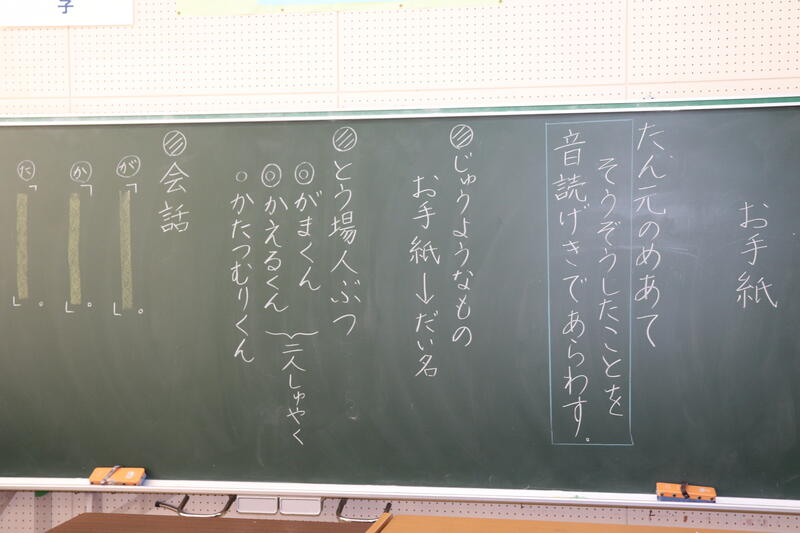 お手紙
たん元のめあて
そうぞうしたことを
音読げきであらわす。
じゅうようなもの
お手紙→だい名
とう場人ぶつ
◎がまくん
◎かえるくん
二人しゅやく
○かたつむりくん
会話
が「 」。
か「 」。
た「 」。
子